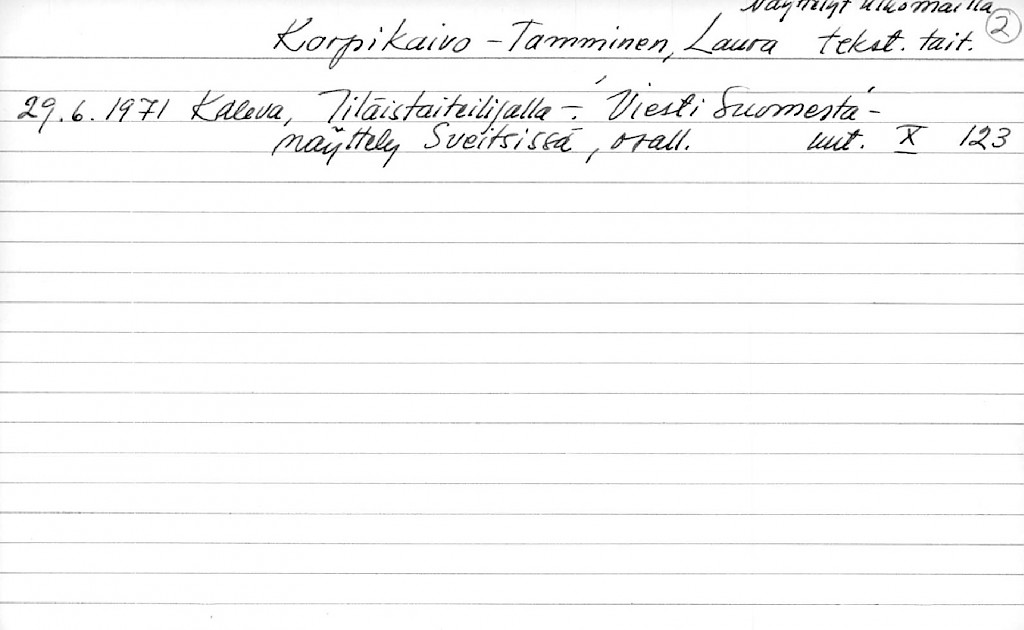 Näyttelyt ulkomailla
2
Korpikaivo-Tamminen, Laura tekst. tait.
29.6.1971 Kaleva, Tiläistaiteilijalla -: Viesti Suomesta -
näyttely Sveitsissä, osall. uut. X 123